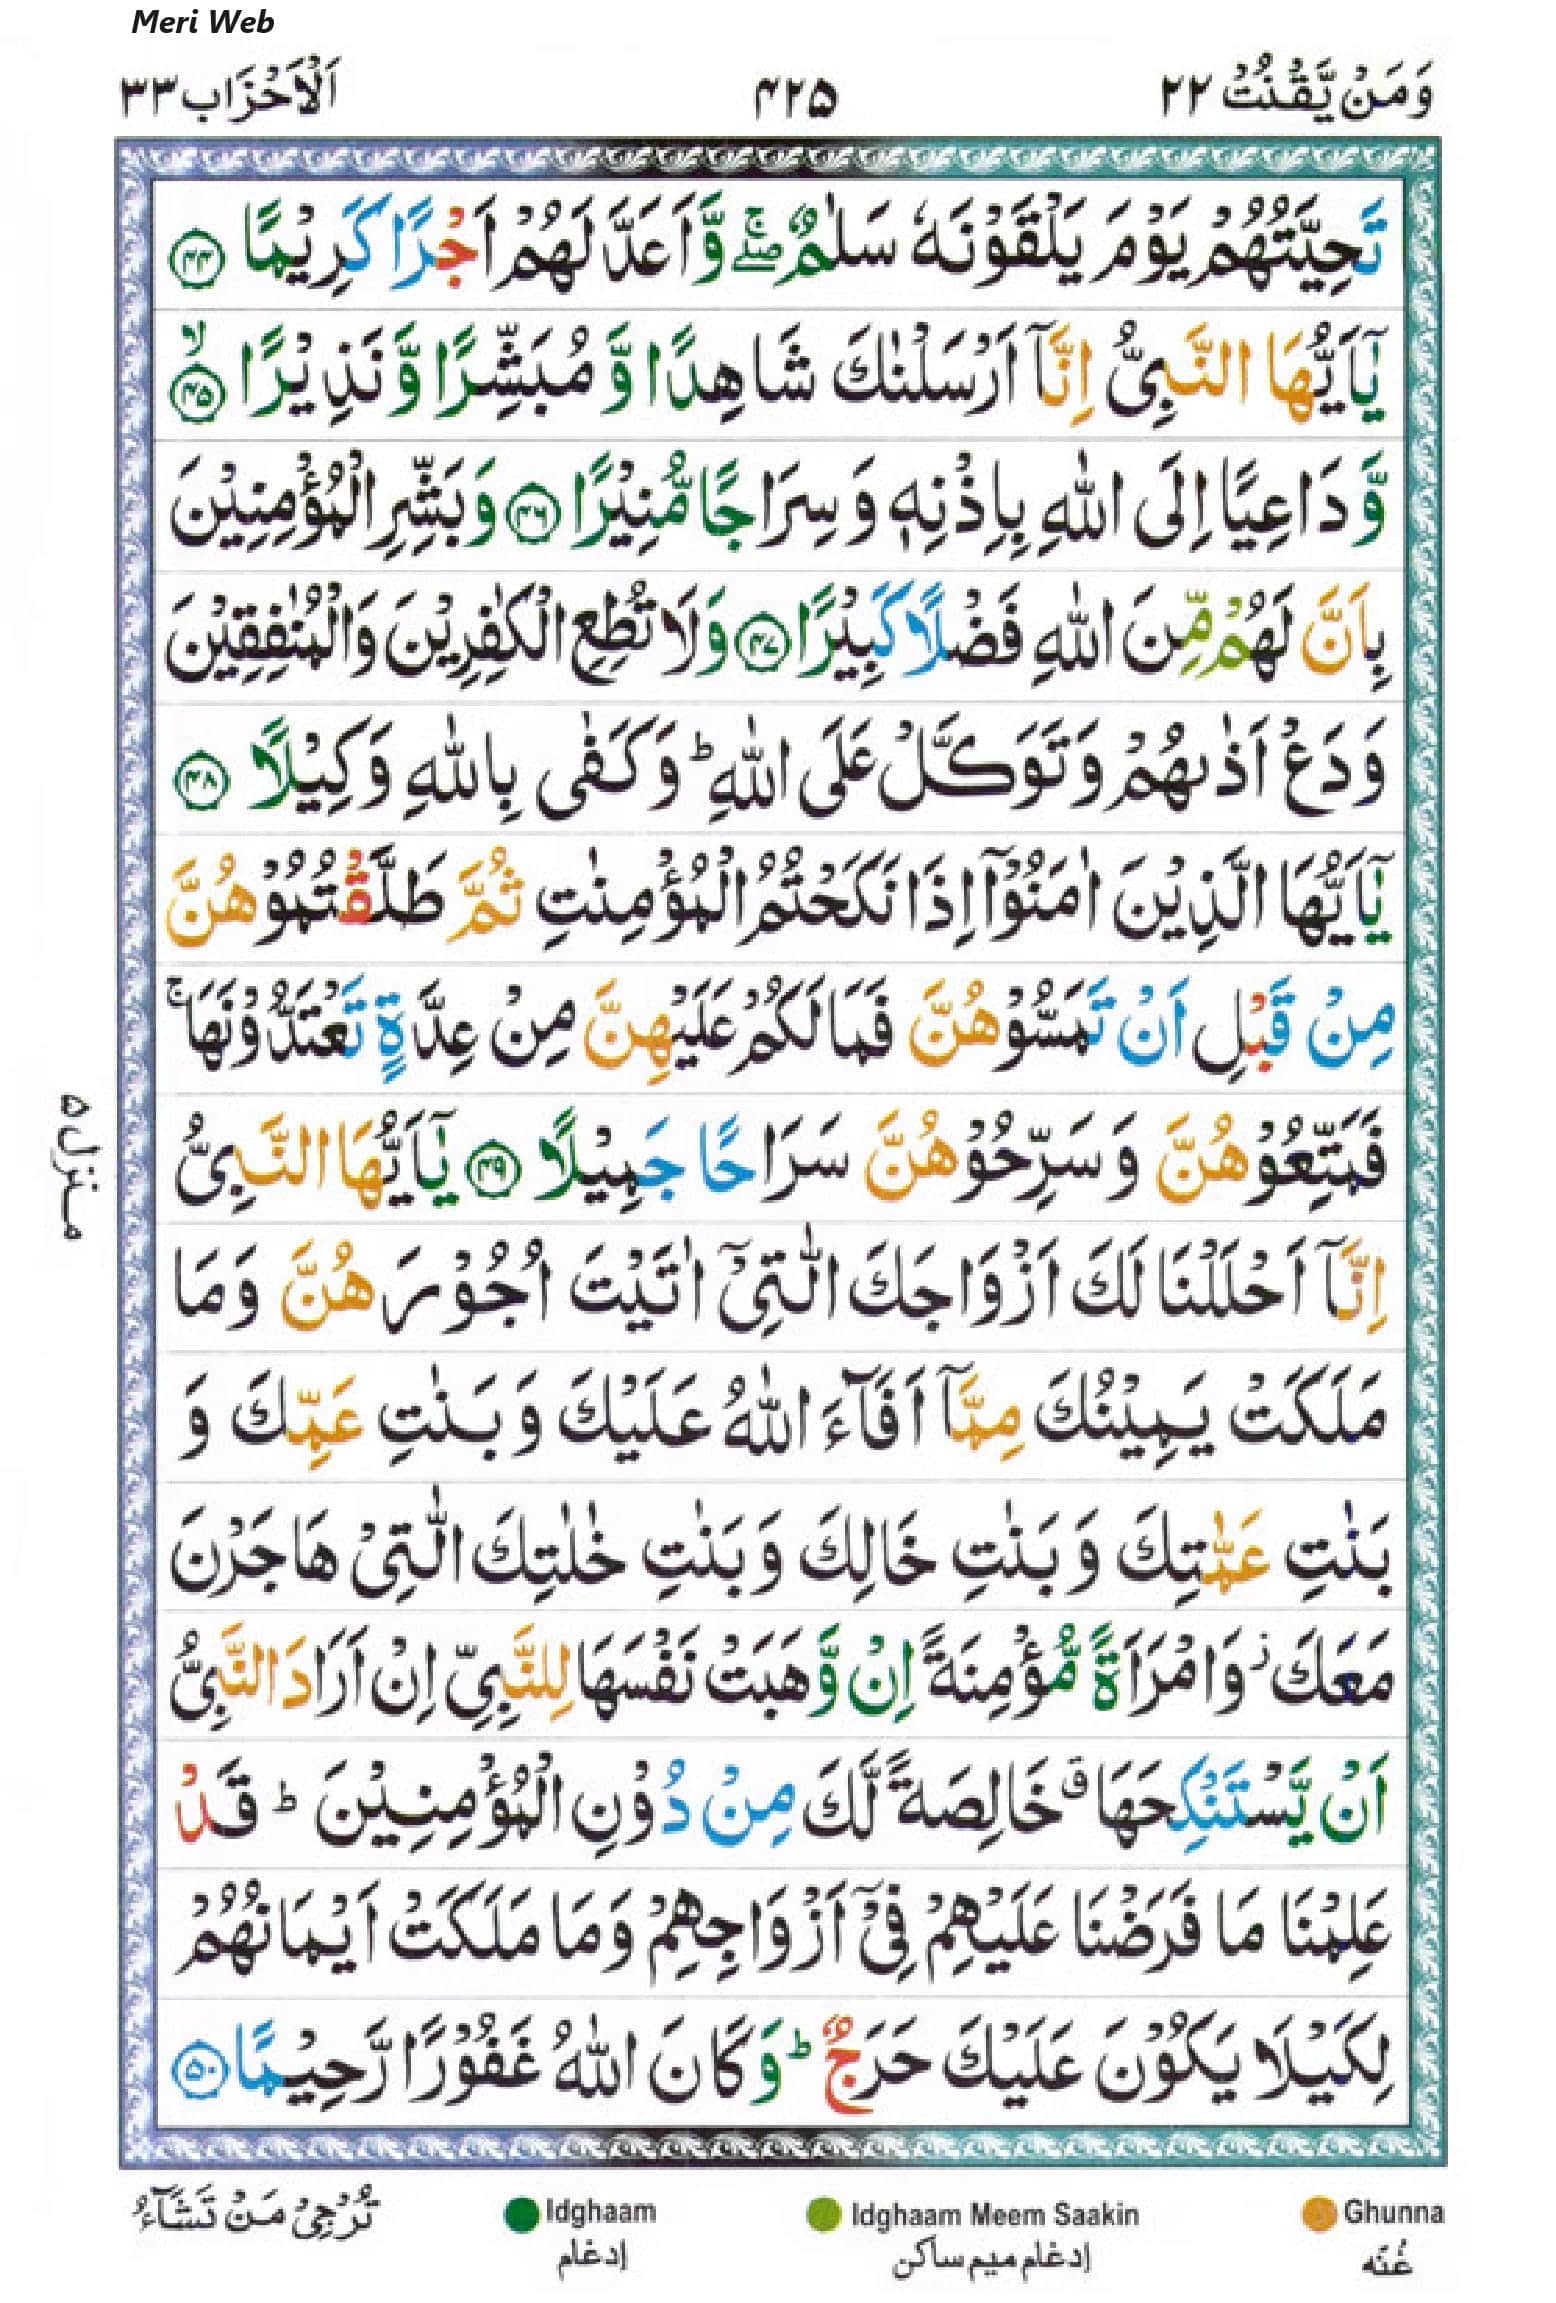 Meri Web
وَمَنۡ يَّقۡنُتۡ ٢٢
۴۲۵
اَلۡاَحۡزَاب ٣٣
تَحِيَّتُهُمۡ يَوۡمَ يَلۡقَوۡنَهٗ سَلٰمٌ ۖۚ وَّاَعَدَّ لَهُمۡ اَجۡرًا كَرِيۡمًا ﴿۴۴﴾
يٰۤاَيُّهَا النَّبِىُّ اِنَّاۤ اَرۡسَلۡنٰكَ شَاهِدًا وَّ مُبَشِّرًا وَّ نَذِيۡرًا ۙ﴿۴۵﴾
وَّ دَاعِيًا اِلَى اللّٰهِ بِاِذۡنِهٖ وَ سِرَاجًا مُّنِيۡرًا ﴿۴۶﴾ وَبَشِّرِ الۡمُؤۡمِنِيۡنَ
بِاَنَّ لَهُمۡ مِّنَ اللّٰهِ فَضۡلًا كَبِيۡرًا ﴿۴۷﴾ وَلَا تُطِعِ الۡكٰفِرِيۡنَ وَالۡمُنٰفِقِيۡنَ
وَدَعۡ اَذٰٮهُمۡ وَتَوَكَّلۡ عَلَى اللّٰهِ ؕ وَكَفٰى بِاللّٰهِ وَكِيۡلًا ﴿۴۸﴾
يٰۤاَيُّهَا الَّذِيۡنَ اٰمَنُوۡۤا اِذَا نَكَحۡتُمُ الۡمُؤۡمِنٰتِ ثُمَّ طَلَّقۡتُمُوۡهُنَّ
مِنۡ قَبۡلِ اَنۡ تَمَسُّوۡهُنَّ فَمَا لَكُمۡ عَلَيۡهِنَّ مِنۡ عِدَّةٍ تَعۡتَدُّوۡنَهَا ۚ
فَمَتِّعُوۡهُنَّ وَ سَرِّحُوۡهُنَّ سَرَاحًا جَمِيۡلًا ﴿۴۹﴾ يٰۤاَيُّهَا النَّبِىُّ
اِنَّاۤ اَحۡلَلۡنَا لَكَ اَزۡوَاجَكَ الّٰتِىۡۤ اٰتَيۡتَ اُجُوۡرَهُنَّ وَمَا
مَلَكَتۡ يَمِيۡنُكَ مِمَّاۤ اَفَآءَ اللّٰهُ عَلَيۡكَ وَ بَنٰتِ عَمِّكَ وَ
بَنٰتِ عَمّٰتِكَ وَ بَنٰتِ خَالِكَ وَ بَنٰتِ خٰلٰتِكَ الّٰتِىۡ هَاجَرۡنَ
مَعَكَ ۫ وَامۡرَاَةً مُّؤۡمِنَةً اِنۡ وَّهَبَتۡ نَفۡسَهَا لِلنَّبِىِّ اِنۡ اَرَادَ النَّبِىُّ
اَنۡ يَّسۡتَنۡكِحَهَا ۗ خَالِصَةً لَّكَ مِنۡ دُوۡنِ الۡمُؤۡمِنِيۡنَ ؕ قَدۡ
عَلِمۡنَا مَا فَرَضۡنَا عَلَيۡهِمۡ فِىۡۤ اَزۡوَاجِهِمۡ وَمَا مَلَكَتۡ اَيۡمَانُهُمۡ
لِكَيۡلَا يَكُوۡنَ عَلَيۡكَ حَرَجٌ ؕ وَكَانَ اللّٰهُ غَفُوۡرًا رَّحِيۡمًا ﴿۵۰﴾
منزل ۵
تُرۡجِىۡ مَنۡ تَشَآءُ
Idghaam
إدغام
Idghaam Meem Saakin
إدغام ميم ساكن
Ghunna
غُنّه